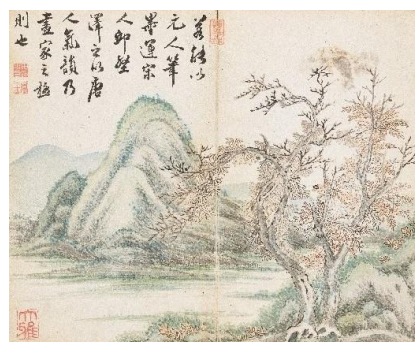 若能以
元人筆
墨運宋
人邱壑
澤之以唐
人氣韻乃
畫家之極
則也